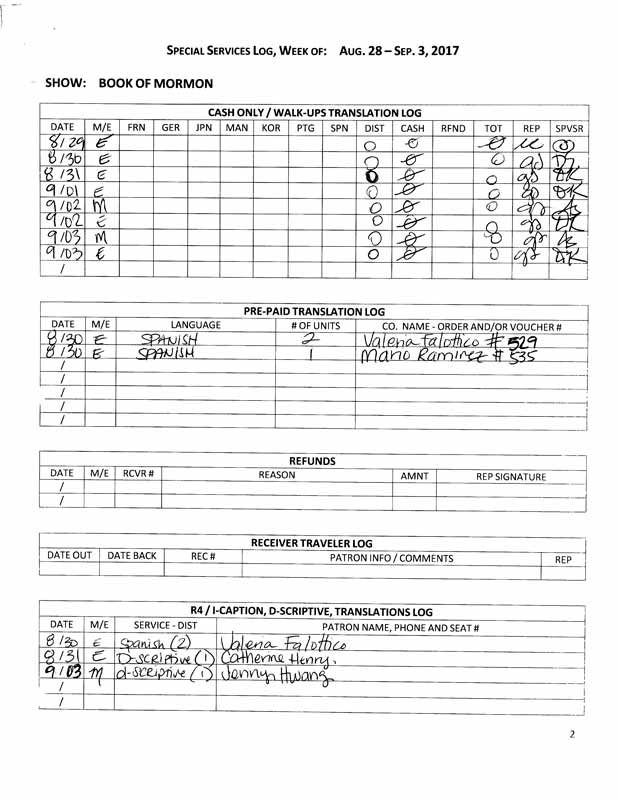 SPECIAL SERVICES LOG, WEEK OF: AUG. 28 – SEP. 3, 2017
SHOW: BOOK OF MORMON
CASH ONLY / WALK-UPS TRANSLATION LOG
DATE M/E FRN GER JPN MAN KOR PTG SPN DIST CASH RFND TOT REP SPVSR
8/29 E 0 0 0
8/30 E 0 0 0
8/31 E 0 0 0 DK
9/01 E 0 0 0 DK
9/02 M 0 0 0
9/02 E 0 0 0 DK
9/03 M 0 0 0
9/03 E 0 0 0 DK
/
PRE-PAID TRANSLATION LOG
DATE M/E LANGUAGE # OF UNITS CO. NAME - ORDER AND/OR VOUCHER #
8/30 E SPANISH 2 Valena Falottico # 529
8/30 E SPANISH 1 Mario Ramirez # 535
/
/
/
/
/
REFUNDS
DATE M/E RCVR # REASON AMNT REP SIGNATURE
/
/
RECEIVER TRAVELER LOG
DATE OUT DATE BACK REC # PATRON INFO / COMMENTS REP
R4 / I-CAPTION, D-SCRIPTIVE, TRANSLATIONS LOG
DATE M/E SERVICE - DIST PATRON NAME, PHONE AND SEAT #
8/30 E Spanish (2) Valena Falottico
8/31 E D-SCRIPTIVE (1) Catherine Henry.
9/03 M d-SCRIPTIVE (1) Jenny Hwang
/
/
2